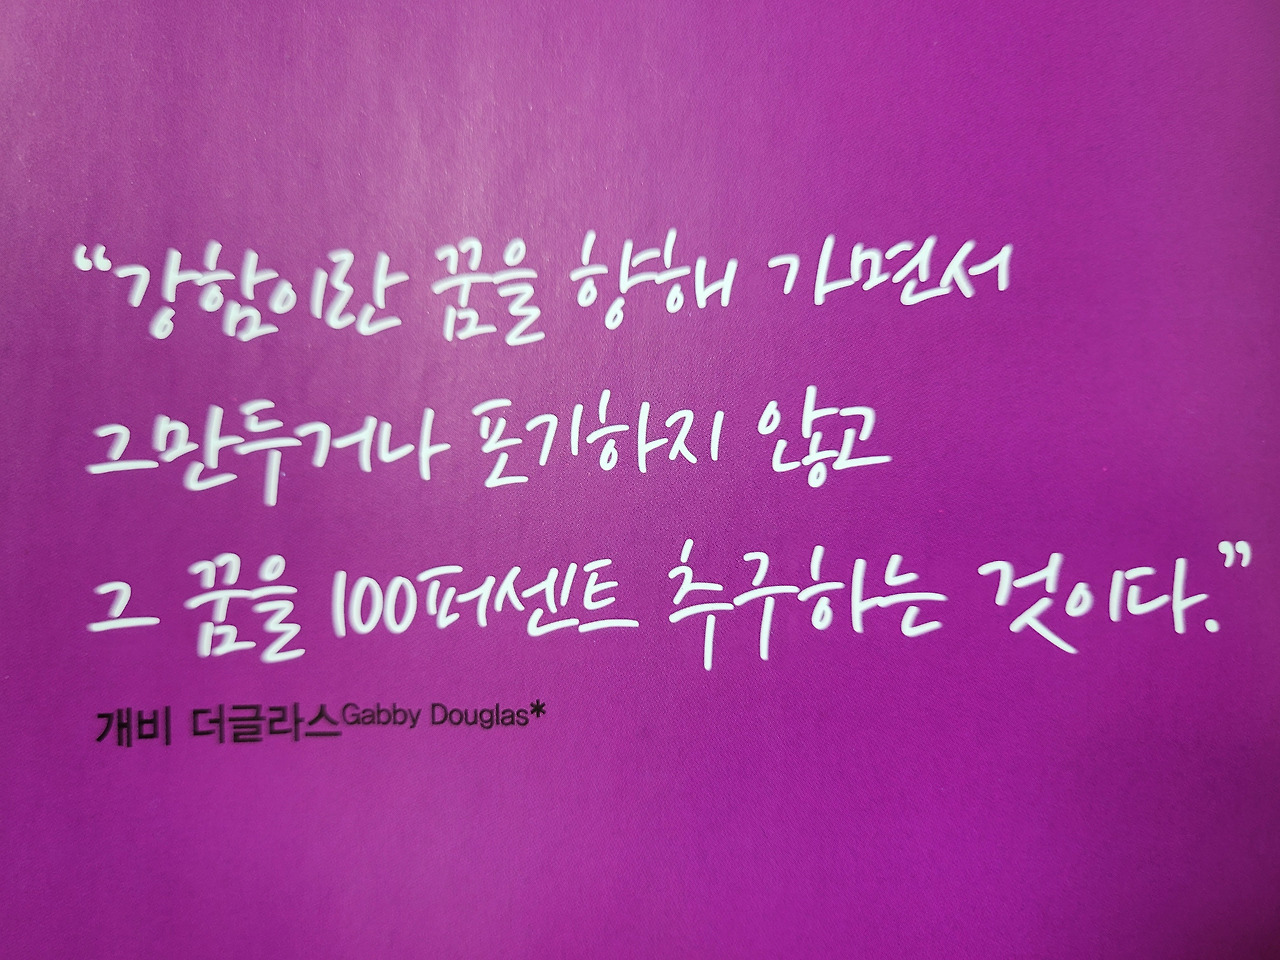 “강함이란 꿈을 향해 가면서
그만두거나 포기하지 않고
그 꿈을 100퍼센트 추구하는 것이다.”
개비 더글라스Gabby Douglas*